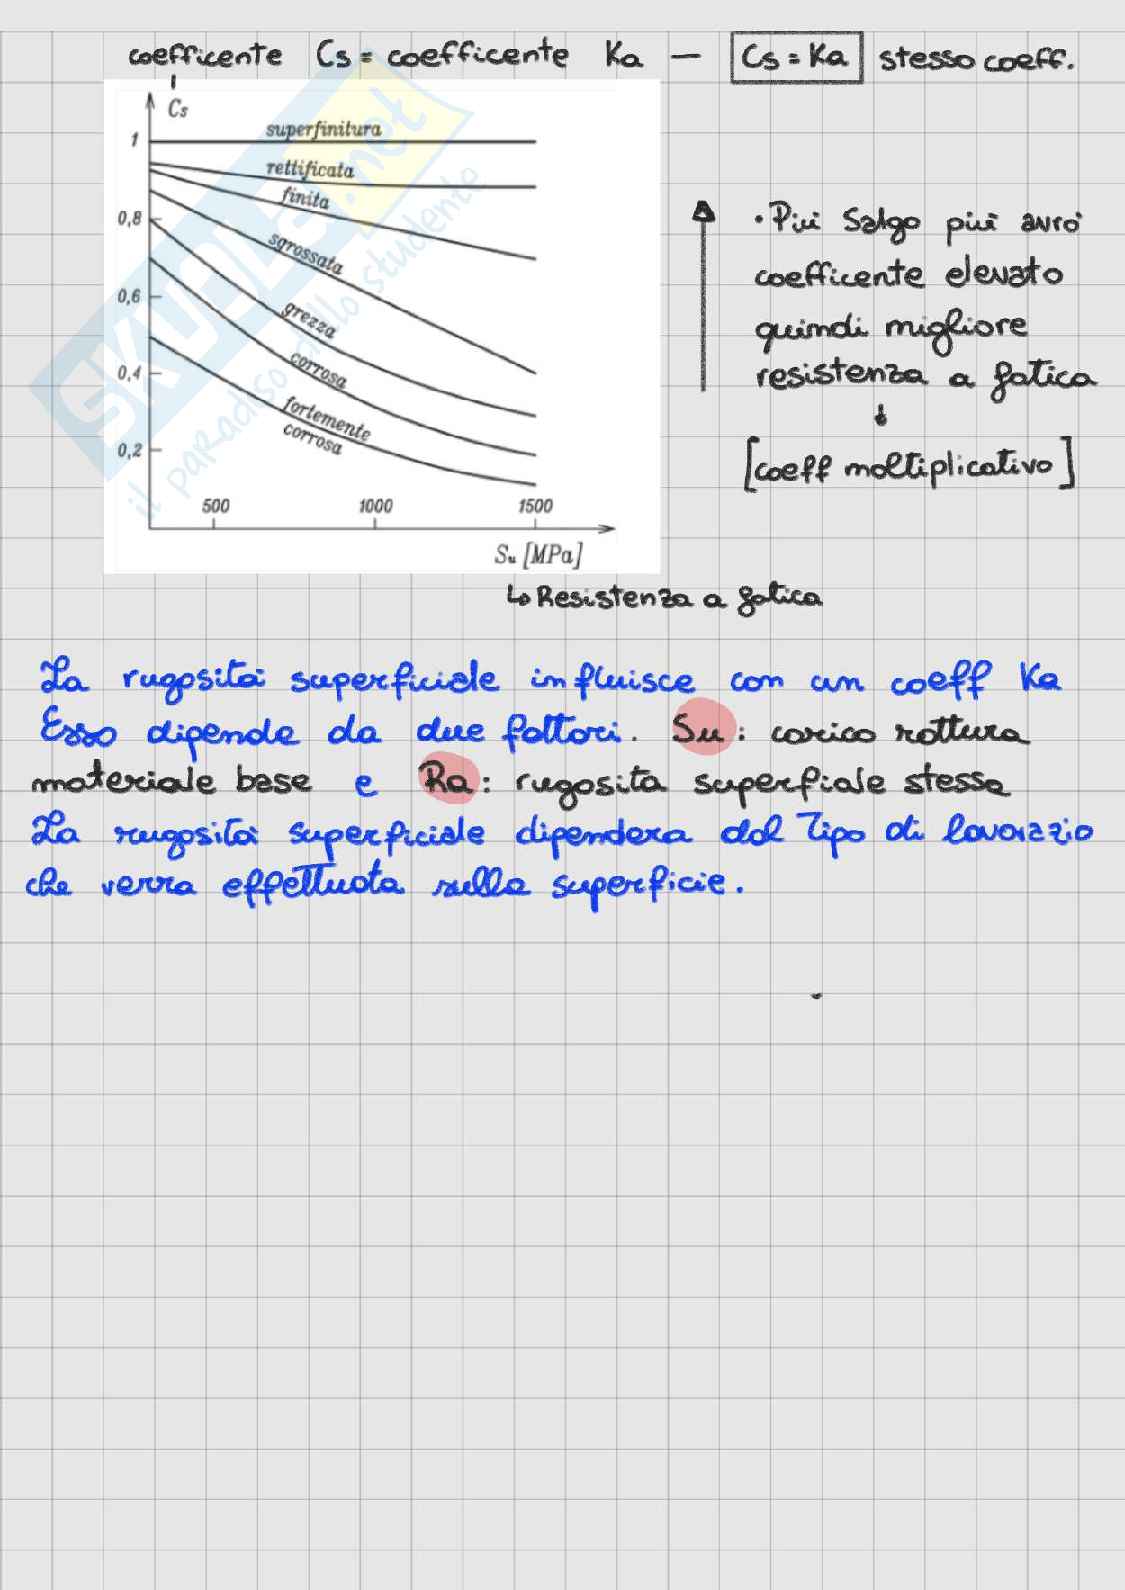 coefficente Cs = coefficente Ka — Cs = Ka stesso coeff.
Cs
1
superfinitura
rettificata
finita
0,8
sgrossata
0,6
grezza
0,4
corrosa
fortemente
corrosa
0,2
500 1000 1500
Su [MPa]
SKUOLA.net
il paradiso dello studente
• Più Salgo più avrò
coefficente elevato
quindi migliore
resistenza a fatica
[coeff moltiplicativo]
↳ Resistenza a fatica
La rugosità superficiale influisce con un coeff Ka
Esso dipende da due fattori. Su: carico rottura
materiale base e Ra: rugosita superfiale stessa
La rugosità superficiale dipendera dal Tipo di lavorzzio
che verra effettuata sulla superficie.